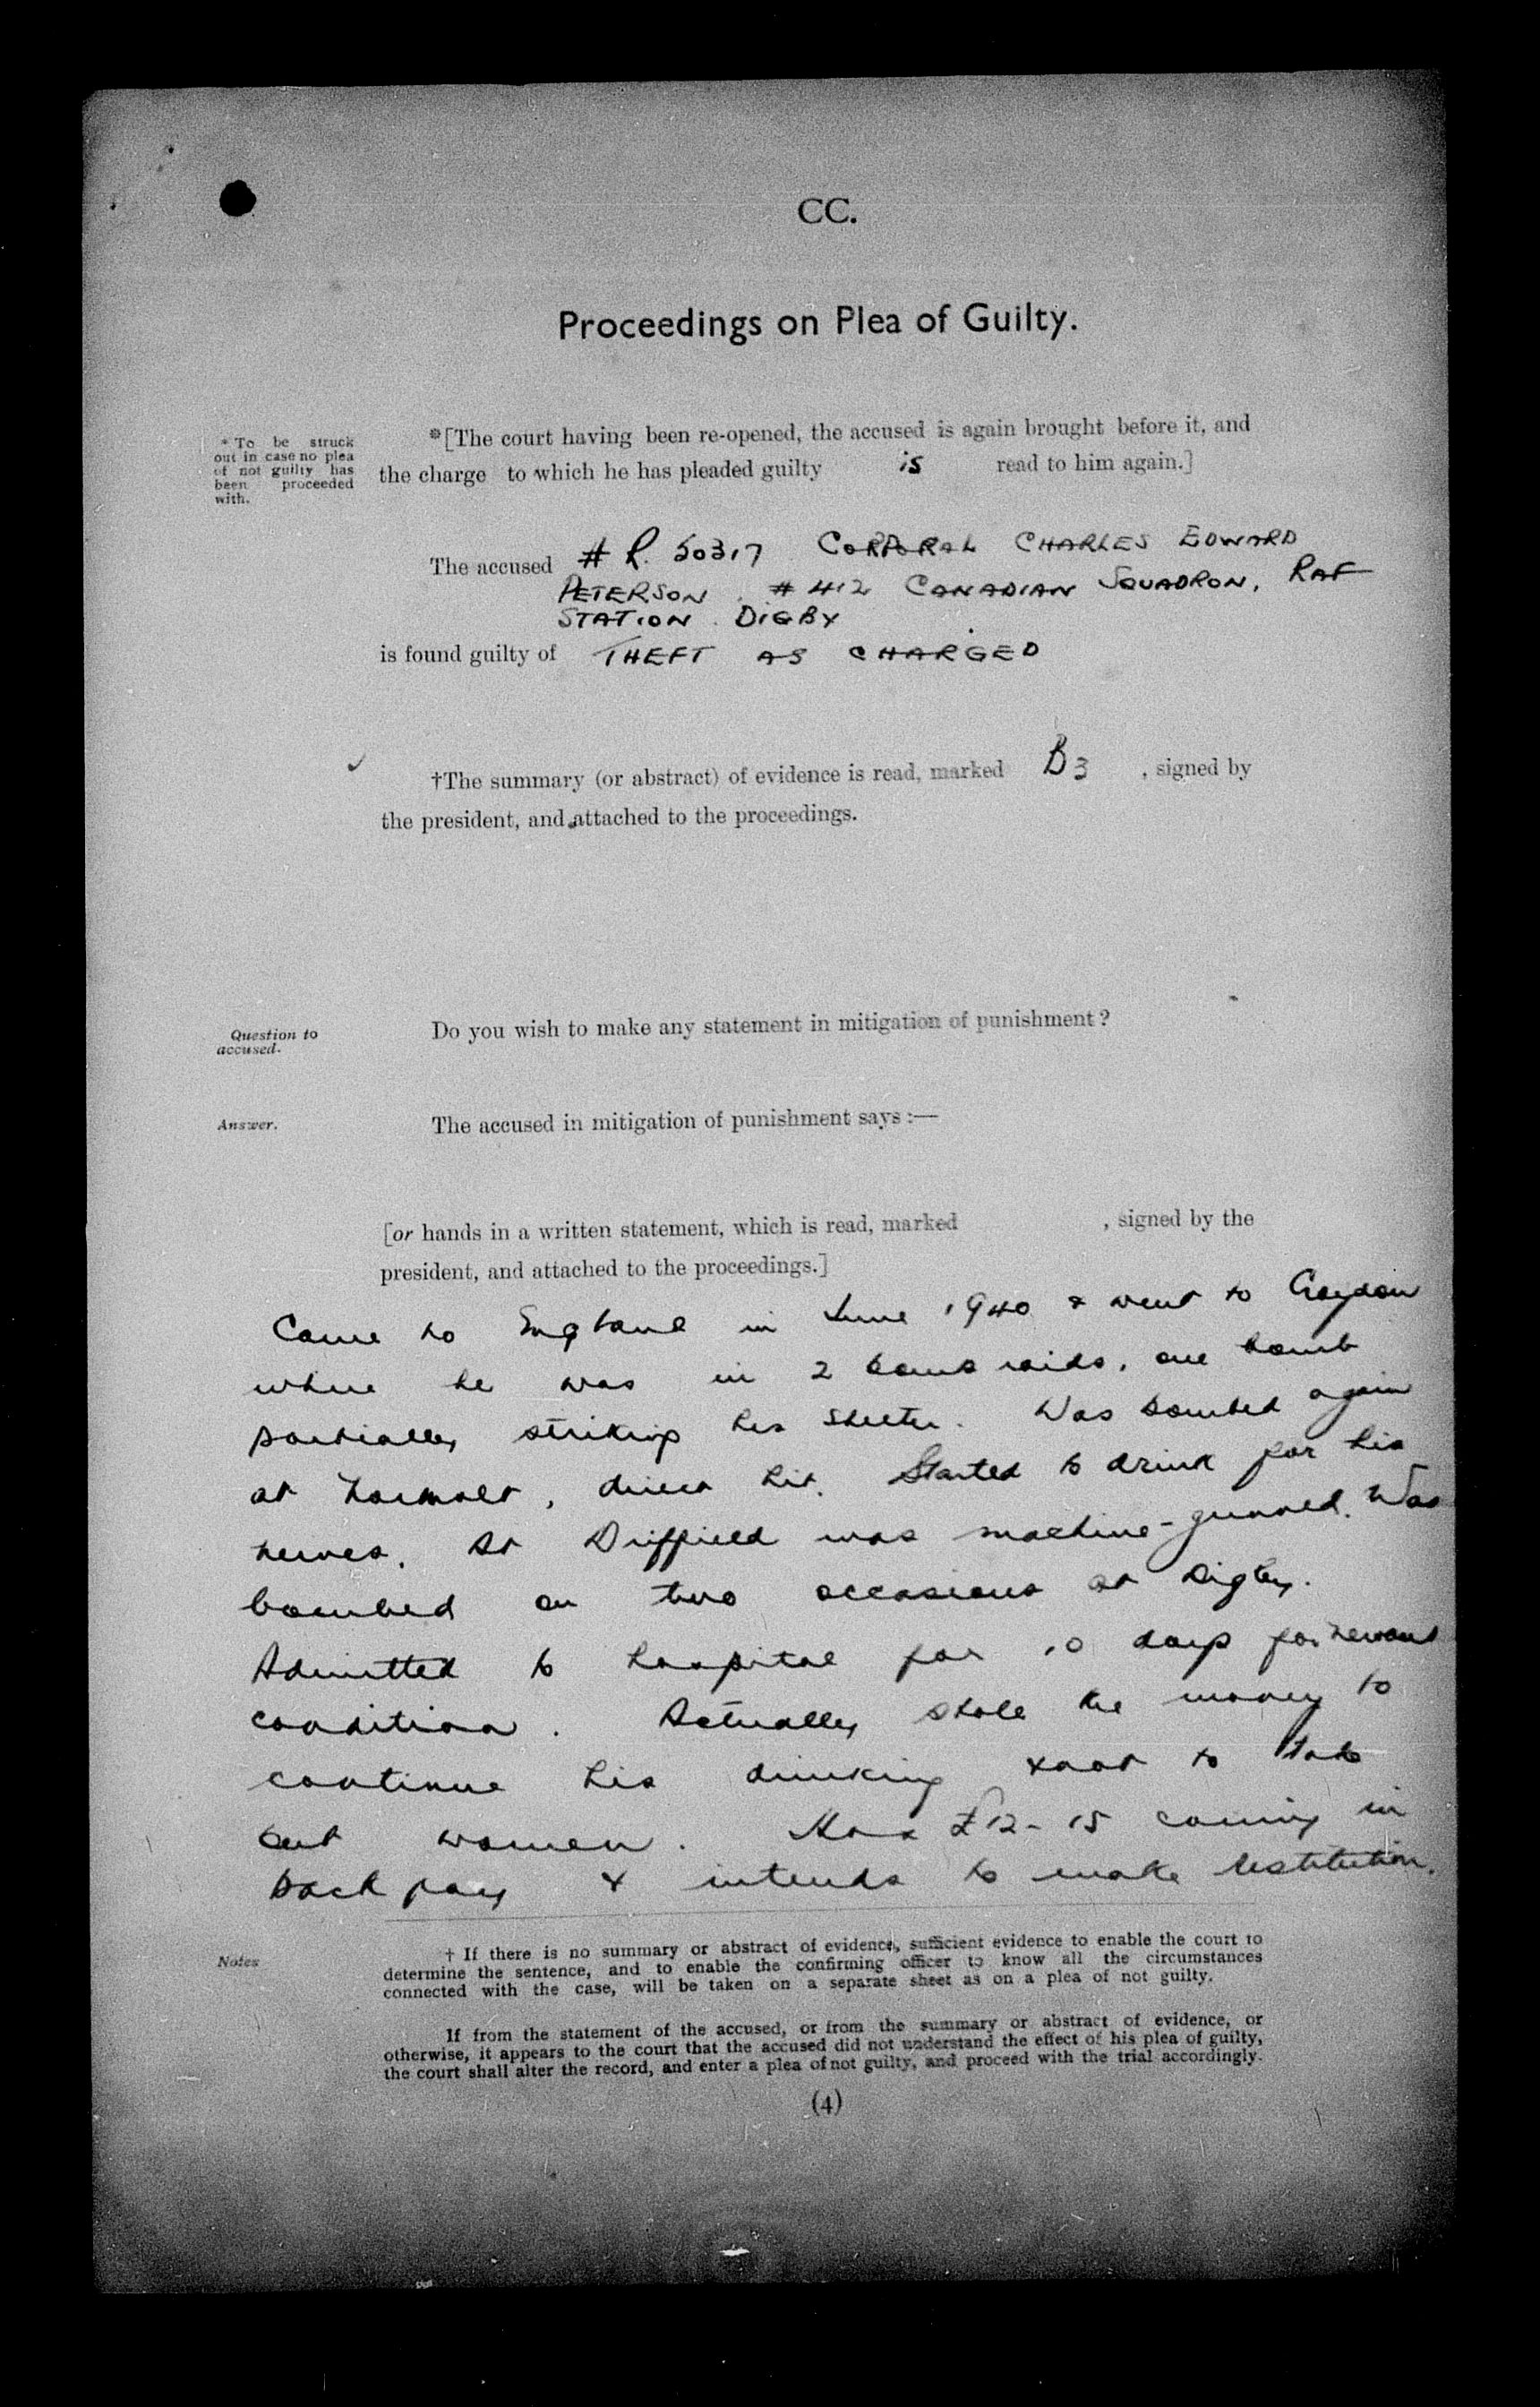 CC.
Proceedings on Plea of Guilty.
* To be struck
out in case no plea
of not guilty has
been proceeded
with.
*[The court having been re-opened, the accused is again brought before it, and
the charge to which he has pleaded guilty is read to him again.]
The accused # R. 50317 CORPORAL CHARLES EDWARD
PETERSON. # 412 CANADIAN SQUADRON, RAF
STATION. DIGBY
is found guilty of THEFT AS CHARGED
†The summary (or abstract) of evidence is read, marked B3 , signed by
the president, and attached to the proceedings.
Question to
accused.
Do you wish to make any statement in mitigation of punishment?
Answer.
The accused in mitigation of punishment says :—
[or hands in a written statement, which is read, marked , signed by the
president, and attached to the proceedings.]
Came to England in June 1940 & went to Croydon
where he was in 2 bomb raids, one bomb
partially striking his shelter. Was bombed again
at Northolt, direct hit. Started to drink for his
nerves. At Driffield was machine-gunned. Was
bombed on two occasions at Digby.
Admitted to hospital for 10 days for nervous
condition. Actually stole the money to
continue his drinking & not to take
out women. Has £12-15 coming in
back pay & intends to make restitution.
Notes
† If there is no summary or abstract of evidence, sufficient evidence to enable the court to
determine the sentence, and to enable the confirming officer to know all the circumstances
connected with the case, will be taken on a separate sheet as on a plea of not guilty.
If from the statement of the accused, or from the summary or abstract of evidence, or
otherwise, it appears to the court that the accused did not understand the effect of his plea of guilty,
the court shall alter the record, and enter a plea of not guilty, and proceed with the trial accordingly.
(4)